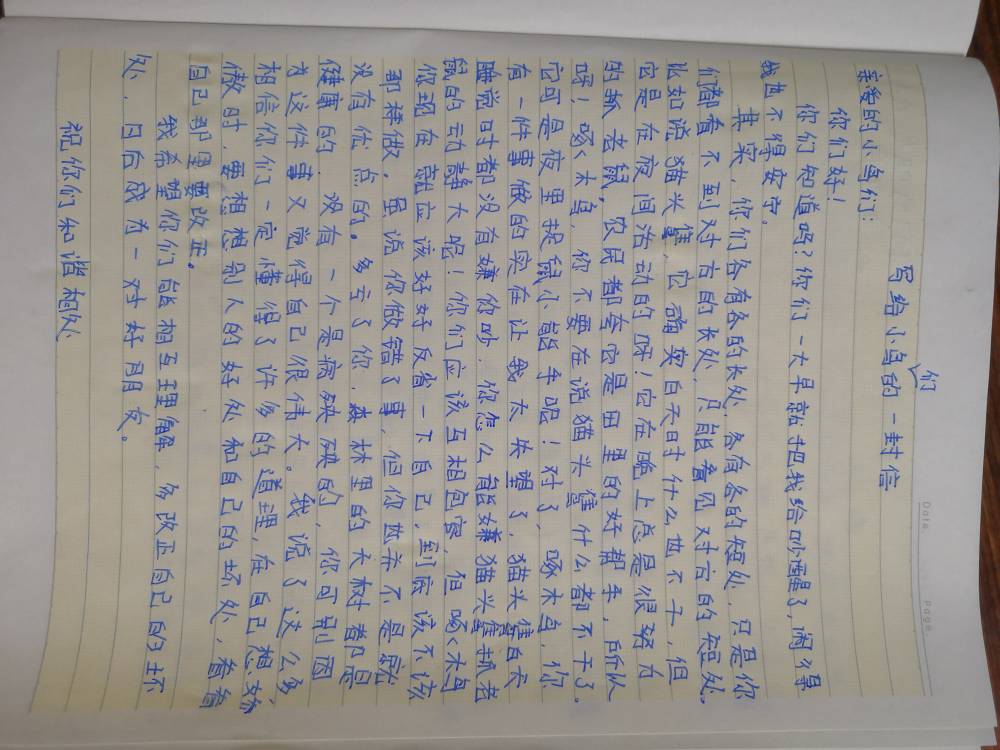 写给小鸟们的一封信
Date.
Page.
亲爱的小鸟们:
你们好!
你们知道吗?你们一大早就把我给吵醒了,闹得
我也不得安宁。
其实,你们各有各的长处,各有各的短处,只是你
们都看不到对方的长处,只能看见对方的短处。
比如说猫头鹰,它确实白天时什么也不干,但
它是在夜间活动的呀!它在晚上总是很努力
的抓老鼠,农民都夸它是田里的好帮手,所以
呀!啄木鸟,你不要在说猫头鹰什么都不干了。
它可是夜里捉鼠小能手呢!对了,啄木鸟,你
有一件事做的实在让我太失望了,猫头鹰白天
睡觉时都没有嫌你吵,你怎么能嫌猫头鹰抓老
鼠的动静大呢!你们应该互相包容,但啄木鸟
你现在就应该好好反省一下自己,到底该不该
那样做。虽说你做错了事,但你也并不是就
没有优点的。多亏了你,森林里的大树都是
健康的,没有一个是病殃殃的,你可别因
为这件事又觉得自己很伟大。我说了这么多
相信你们一定懂得了许多的道理,在自己想娇
傲时,要想想别人的好处和自己的坏处,看看
自己那里要改正。
我希望你们能相互理解,多改正自己的坏
处,日后成为一对好朋友。
祝你们和谐相处